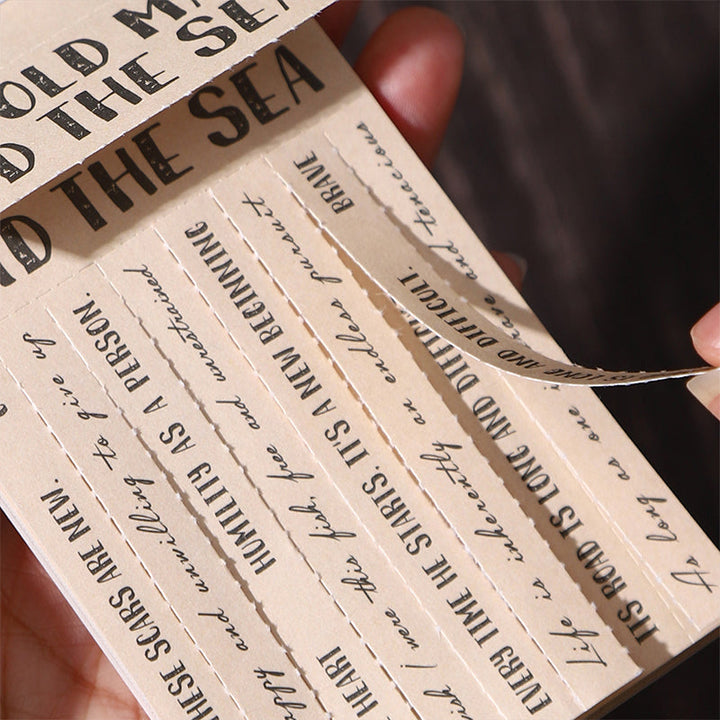 OLD
THE SEA
THE SEA
THESE SCARS ARE NEW.
and unwilling to give up
HEART HUMILITY AS A PERSON.
I were this fish, free and unrestrained
EVERY TIME HE STARTS, IT'S A NEW BEGINNING
Life is inherently an endless pursuit
ITS ROAD IS LONG AND DIFFICULT. BRAVE
AND DIFFICULT.
As long as one
and tenacious